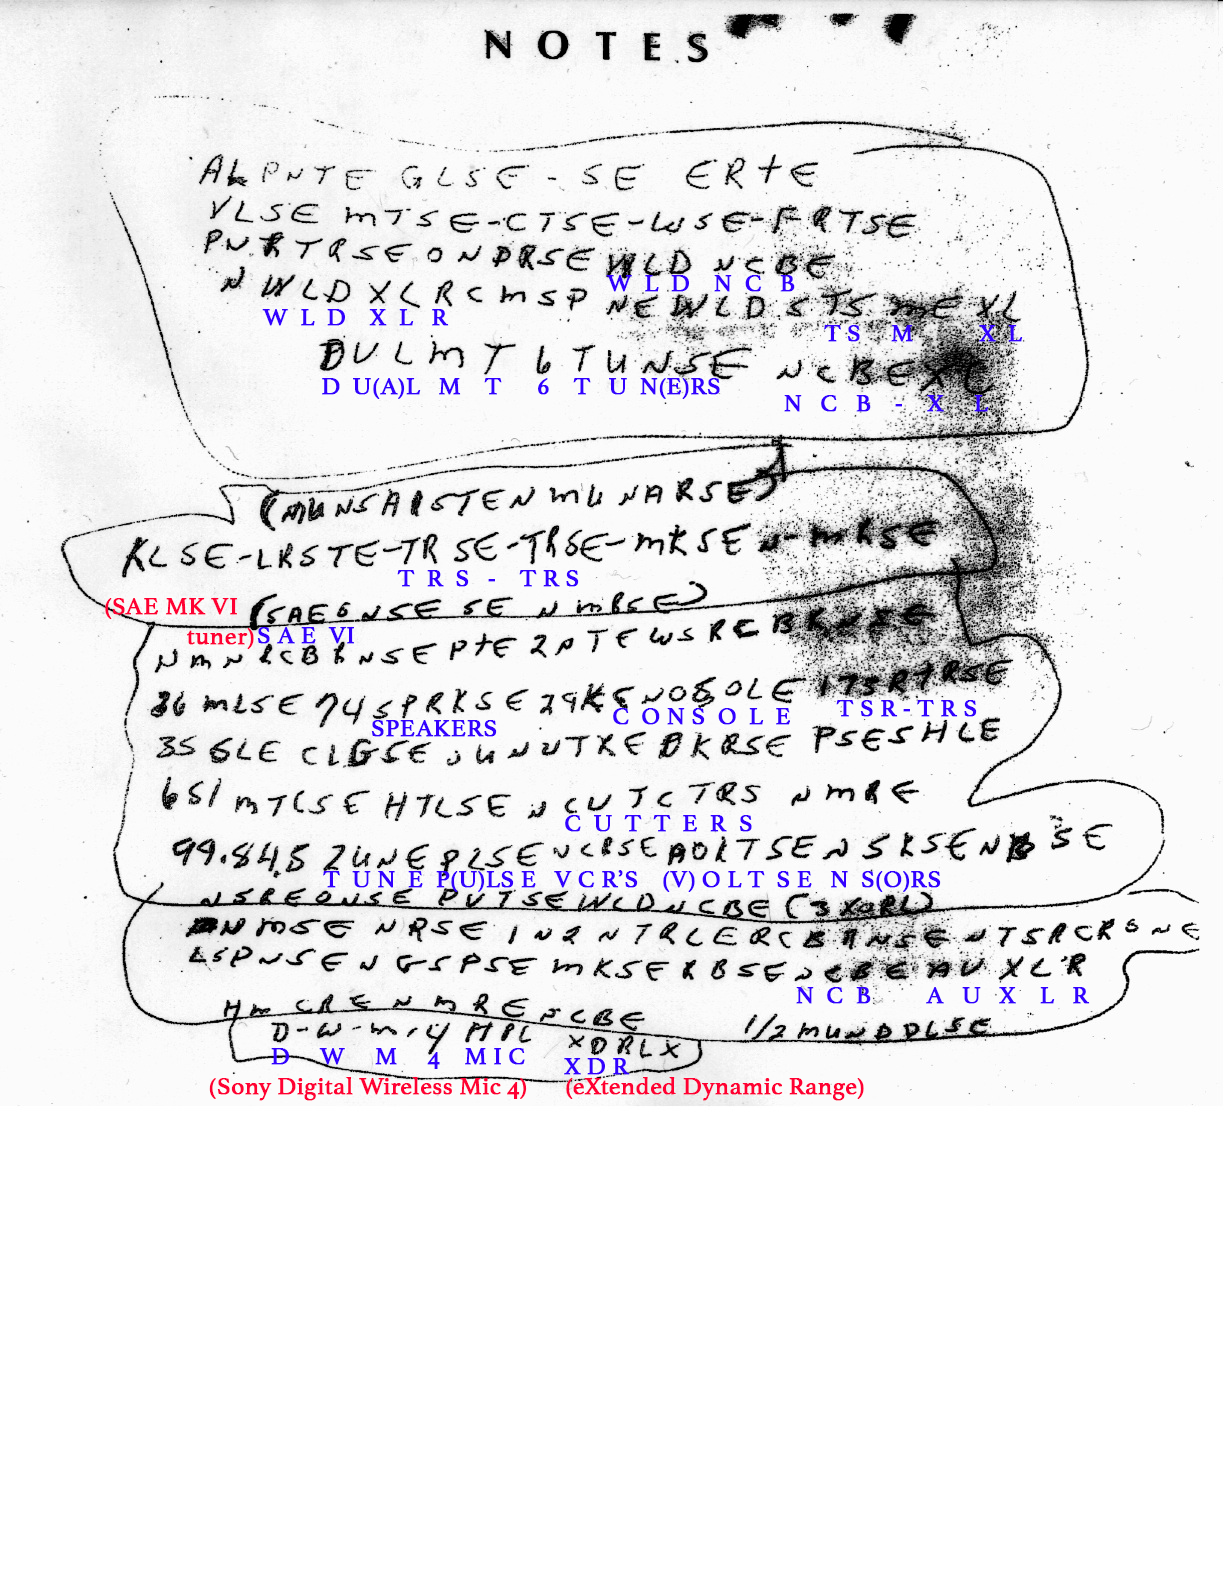 NOTES
ALPNTE GLSE - SE ERTE
VLSE MTSE-CTSE-WSE-FRTSE
PNRTRSE ONDRSE WLD NCBE
W L D N C B
N WLD XLRCMSP NEWLD STS ME XL
W L D X L R TS M X L
DULMT 6 TUNSE NCBEXL
D U(A)L M T 6 T U N(E)RS
N C B - X L
(MUNSAISTEN MUNARSE)
KLSE-LRSTE-TRSE-TRSE-MKSEN-MRSE
T R S - T R S
(SAE MK VI (SAE6NSE SE N MRSE)
tuner) S A E VI
NMNRCBRNSE PTE 2PTE WSRE BRNSE
36 MLSE 74 SPRKSE 29KE NOSOLE 173RTRSE
SPEAKERS C O N S O L E T S R - T R S
35 GLE CLGSE UNUTXE BKRSE PSESHLE
651 MTCSE HTLSE NCUTCTRS NMRE
C U T T E R S
99.84.5 ZUNEPLSE NCRSE AOLTSE NSKSE NBSE
T U N E P(U)LSE VCR'S (V) O L T S E N S(O)RS
NSREONSE PUTSE WLD NCBE (3XORL)
NMSE NRSE IN2 NTRLERCBRNSE NTSRCRONE
LSPNSE NGSPSE MKSERBSE NCBE AUXLR
N C B A U X L R
HMCRE NMRE NCBE 1/2 MUNDDLSE
D-W-M-4 MIL XDRLX)
D W M 4 M I C X D R
(Sony Digital Wireless Mic 4) (eXtended Dynamic Range)